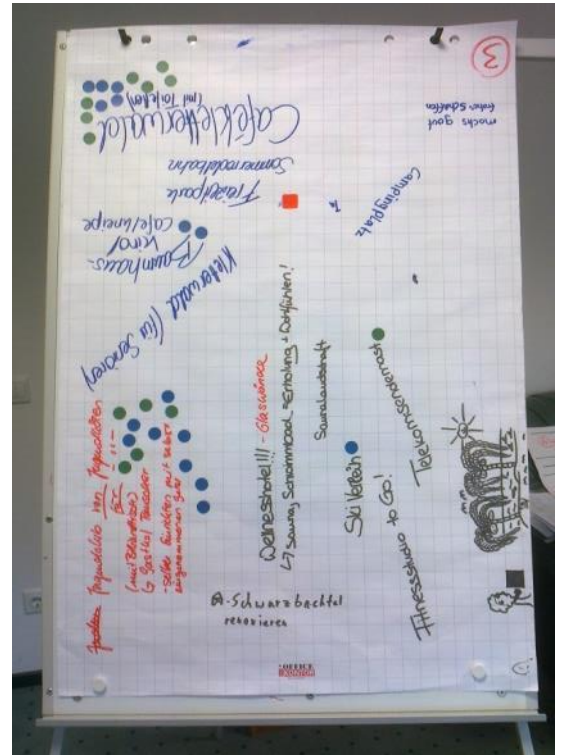 3
machs gout
froher Schaffen
Caféklletterwald
(mit Törtchen)
Sommerrodelbahn
Freizeitpark
Campingplatz
Baumhaus-
kino/
Cafe/Kneipe
Kletterwald (für Senioren)
Jugendclub von Jugendlichen
für - " -
(mit Billardtisch)
-selber Gründen mit selber
eingenommenen geld
Wellnesshotel!!!! - Glaswände
↳ Sauna, Schwimmbad =Erholung + Wohlfühlen!
Saunalandschaft
Ski Verleih
Telekomsendemast
Fitnessstudio to Go!
A-Schwarzbachtal
renovieren
OFFICE
KONTOR